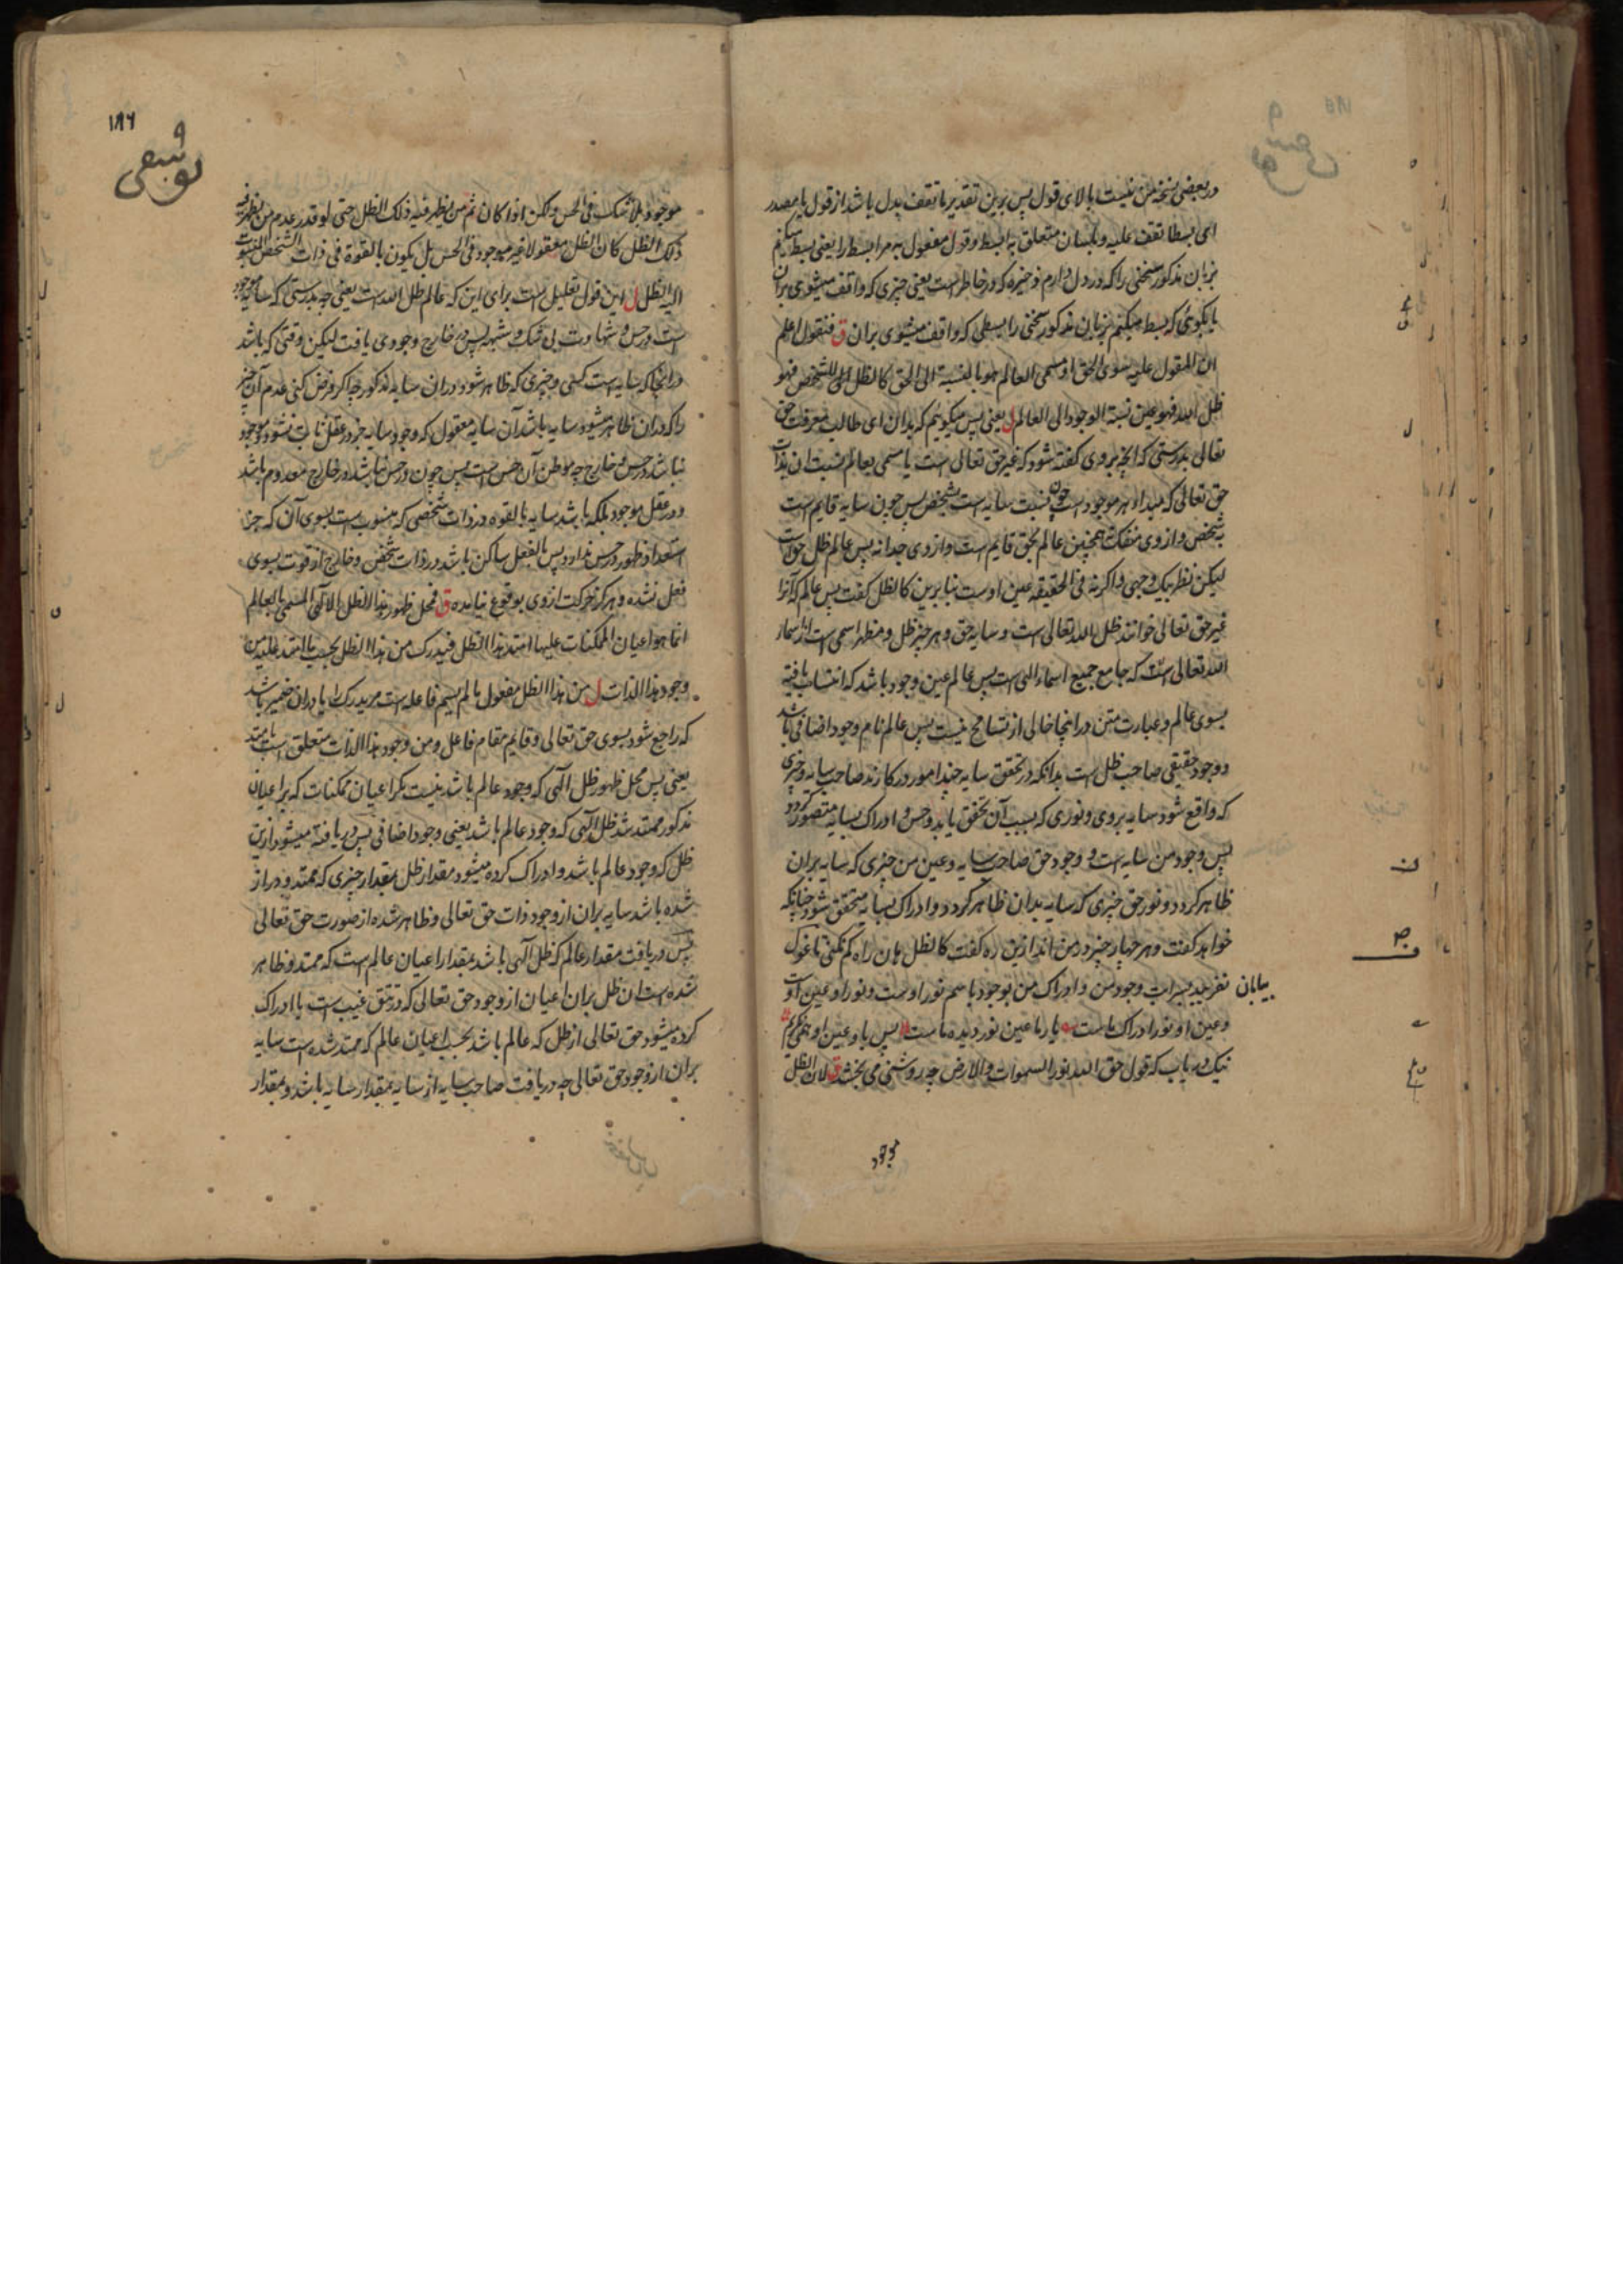 در بعضی نسخ متن نیست بالای قول پس برین تقدیر ما تقف بدل باشد از قول یا مصدر
ای بسطا تقف علیه و بلسان متعلق به ابسط و قول مفعول به مر ابسط را یعنی بسط میکنم
بزبان مذکور سخنی را که در دل دارم و ذخیره که در خاطر است یعنی چیزی که واقف میشوی بران
یا بگوئی که بسط میکنم بزبان مذکور سخنی را بسطی که واقف میشوی بران ق فنقول اعلم
ان المقول علیه سوی الحق او مسمی العالم هو بالنسبة الی الحق کالظل للشخص فهو
ظل الله فهو عین نسبة الوجود الی العالم ل یعنی پس میگوئیم که بدان ای طالب معرفت حق
تعالی بدرستی که آنچه بروی گفته شود که غیر حق تعالی است یا مسمی بعالم بنسبت آن بذات
حق تعالی که مبداء هر موجود است چون نسبت سایه است بشخص پس چون سایه قایم است
بشخص و از وی منفک نه همچنین عالم بحق قایم است و از وی جدا نه پس عالم ظل حق است
لیکن نظر بیک وجهی و اگر نه فی الحقیقه عین اوست بنابرین کالظل گفت پس عالم که آنرا
غیر حق تعالی خوانند ظل الله تعالی است و سایه حق و هر چیز ظل و مظهر اسمی است از اسماء
الله تعالی است که جامع جمیع اسماء الهی است پس عالم عین وجود باشد که انتساب یافته
بسوی عالم و عبارت متن در اینجا خالی از تسامح نیست پس عالم نام وجود اضافی باشد
و وجود حقیقی صاحب ظل است بدانکه در تحقق سایه چند امور درکارند صاحب سایه و چیزی
که واقع شود سایه بروی و نوری که بسبب آن تحقق یابد و حس و ادراک سایه متصور گردد
پس وجود من سایه است و وجود حق صاحب سایه و عین من چیزی که سایه بران
ظاهر گردد و نور حق چیزی که سایه بدان ظاهر گردد و ادراک سایه متحقق شود چنانکه
خواهد گفت و هر چهار چیز در من اند ازین ره گفت کالظل هان راه گم نکنی تا غول
بیابان نفریبد بسراب وجود من و ادراک من بوجود باسم نور اوست و نور او عین اوست
و عین او نور ادراک ماست یار با عین نور دیده ماست پس با و عین او همی نگرم
نیک دریاب که قول حق الله نور السموات والارض چه روشنی می بخشد ق لان الظل
موجود
۱۸۶
موجود بلا شک فی الحس ولکن اذا کان ثم من یظهر فیه ذلک الظل حتی لو قدر عدم من یظهر فیه
ذلک الظل کان الظل معقولا غیر موجود فی الحس بل یکون بالقوة فی ذات الشخص المنسوب
الیه الظل ل این قول تعلیل است برای این که عالم ظل الله است یعنی چه بدرستی که سایه موجود
است در حس و شهادت بی شک و شبهه پس در خارج وجودی یافت لیکن وقتی که باشد
در آنجا که سایه است کسی و چیزی که ظاهر شود در آن سایه مذکور چه اگر فرض کنی عدم آن چیز
را که در آن ظاهر میشود سایه باشد آن سایه معقول که وجود سایه جز در عقل ثابت نشود و موجود
نباشد در حس و خارج چه موطن آن حس است پس چون در حس نباشد در خارج معدوم باشد
و در عقل موجود بلکه باشد سایه بالقوه در ذات شخصی که منسوب است بسوی آن که جز
استعداد ظهور در حس ندارد پس بالفعل ساکن باشد در ذات شخص و خارج از قوت بسوی
فعل نشده و هرگز حرکت از وی بوقوع نیامده ق فمحل ظهور هذا الظل الالهی المسمی بالعالم
انما هو اعیان الممکنات علیها امتد هذا الظل فیدرک من هذا الظل بحسب ما امتد علیه من
وجود هذا الذات ل من هذا الظل مفعول ما لم یسم فاعله است مر یدرک را یا در آن ضمیر باشد
که راجع شود بسوی حق تعالی و قایم مقام فاعل و من وجود هذا الذات متعلق است بامتد
یعنی پس محل ظهور ظل الهی که وجود عالم باشد نیست مگر اعیان ممکنات که بر اعیان
مذکور ممتد شد ظل الهی که وجود عالم باشد یعنی وجود اضافی پس دریافته میشود ازین
ظل که وجود عالم باشد و ادراک کرده میشود مقدار ظل بمقدار چیزی که ممتد و دراز
شده باشد سایه بران از وجود ذات حق تعالی و ظاهر شده از صورت حق تعالی
پس دریافت مقدار عالم که ظل الهی باشد بمقدار اعیان عالم است که ممتد و ظاهر
شده است آن ظل بران اعیان از وجود حق تعالی که در تتق غیب است یا ادراک
کرده میشود حق تعالی از ظل که عالم باشد بحسب اعیان عالم که ممتد شده است سایه
بران از وجود حق تعالی چه دریافت صاحب سایه از سایه بمقدار سایه باشد و بمقدار